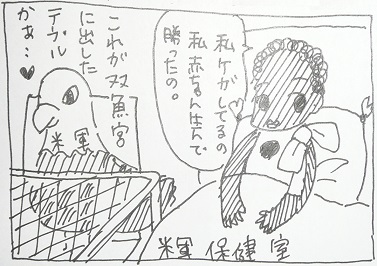 私ケガしてるの
私赤ちゃん生んで
勝ったの。
これが双魚宮
に出した
テーブル
かぁ…♥
米軍
米軍 保健室